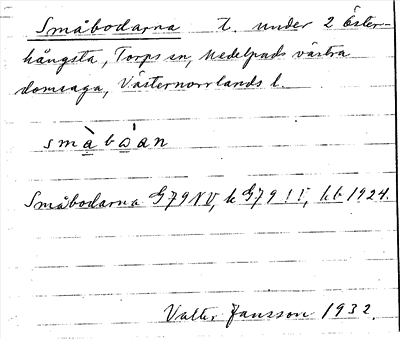 Småbodarna t. under 2 Öster-
hångsta, Torps sn, Medelpads västra
domsaga, Västernorrlands l.
småbɷ̀an
Småbodarna G79NV, k G79 II, kb 1924.
Valter Jansson 1932.